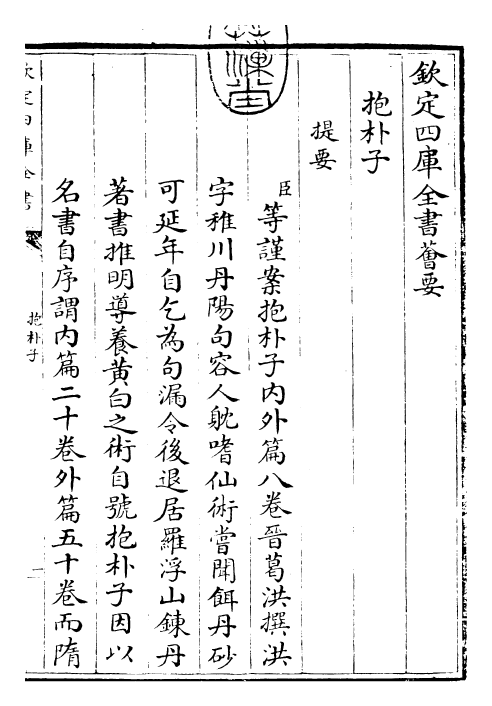 欽定四庫全書薈要
抱朴子
提要
臣等謹案抱朴子內外篇八卷晉葛洪撰洪
字稚川丹陽句容人躭嗜仙術嘗聞餌丹砂
可延年自乞為句漏令後退居羅浮山鍊丹
著書推明導養黄白之術自號抱朴子因以
名書自序謂内篇二十卷外篇五十卷而隋
欽定四庫全書
抱朴子
一